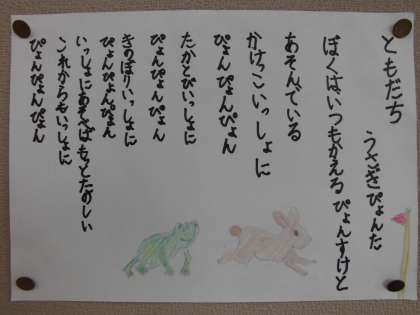 ともだち
うさぎぴょんた
ぼくはいつもかえるぴょんすけと
あそんでいる
かけっこいっしょに
ぴょんぴょんぴょん
たかとびいっしょに
ぴょんぴょんぴょん
きのぼりいっしょに
ぴょんぴょんぴょん
いっしょにあそぶともっとたのしい
これからもいっしょに
ぴょんぴょんぴょん